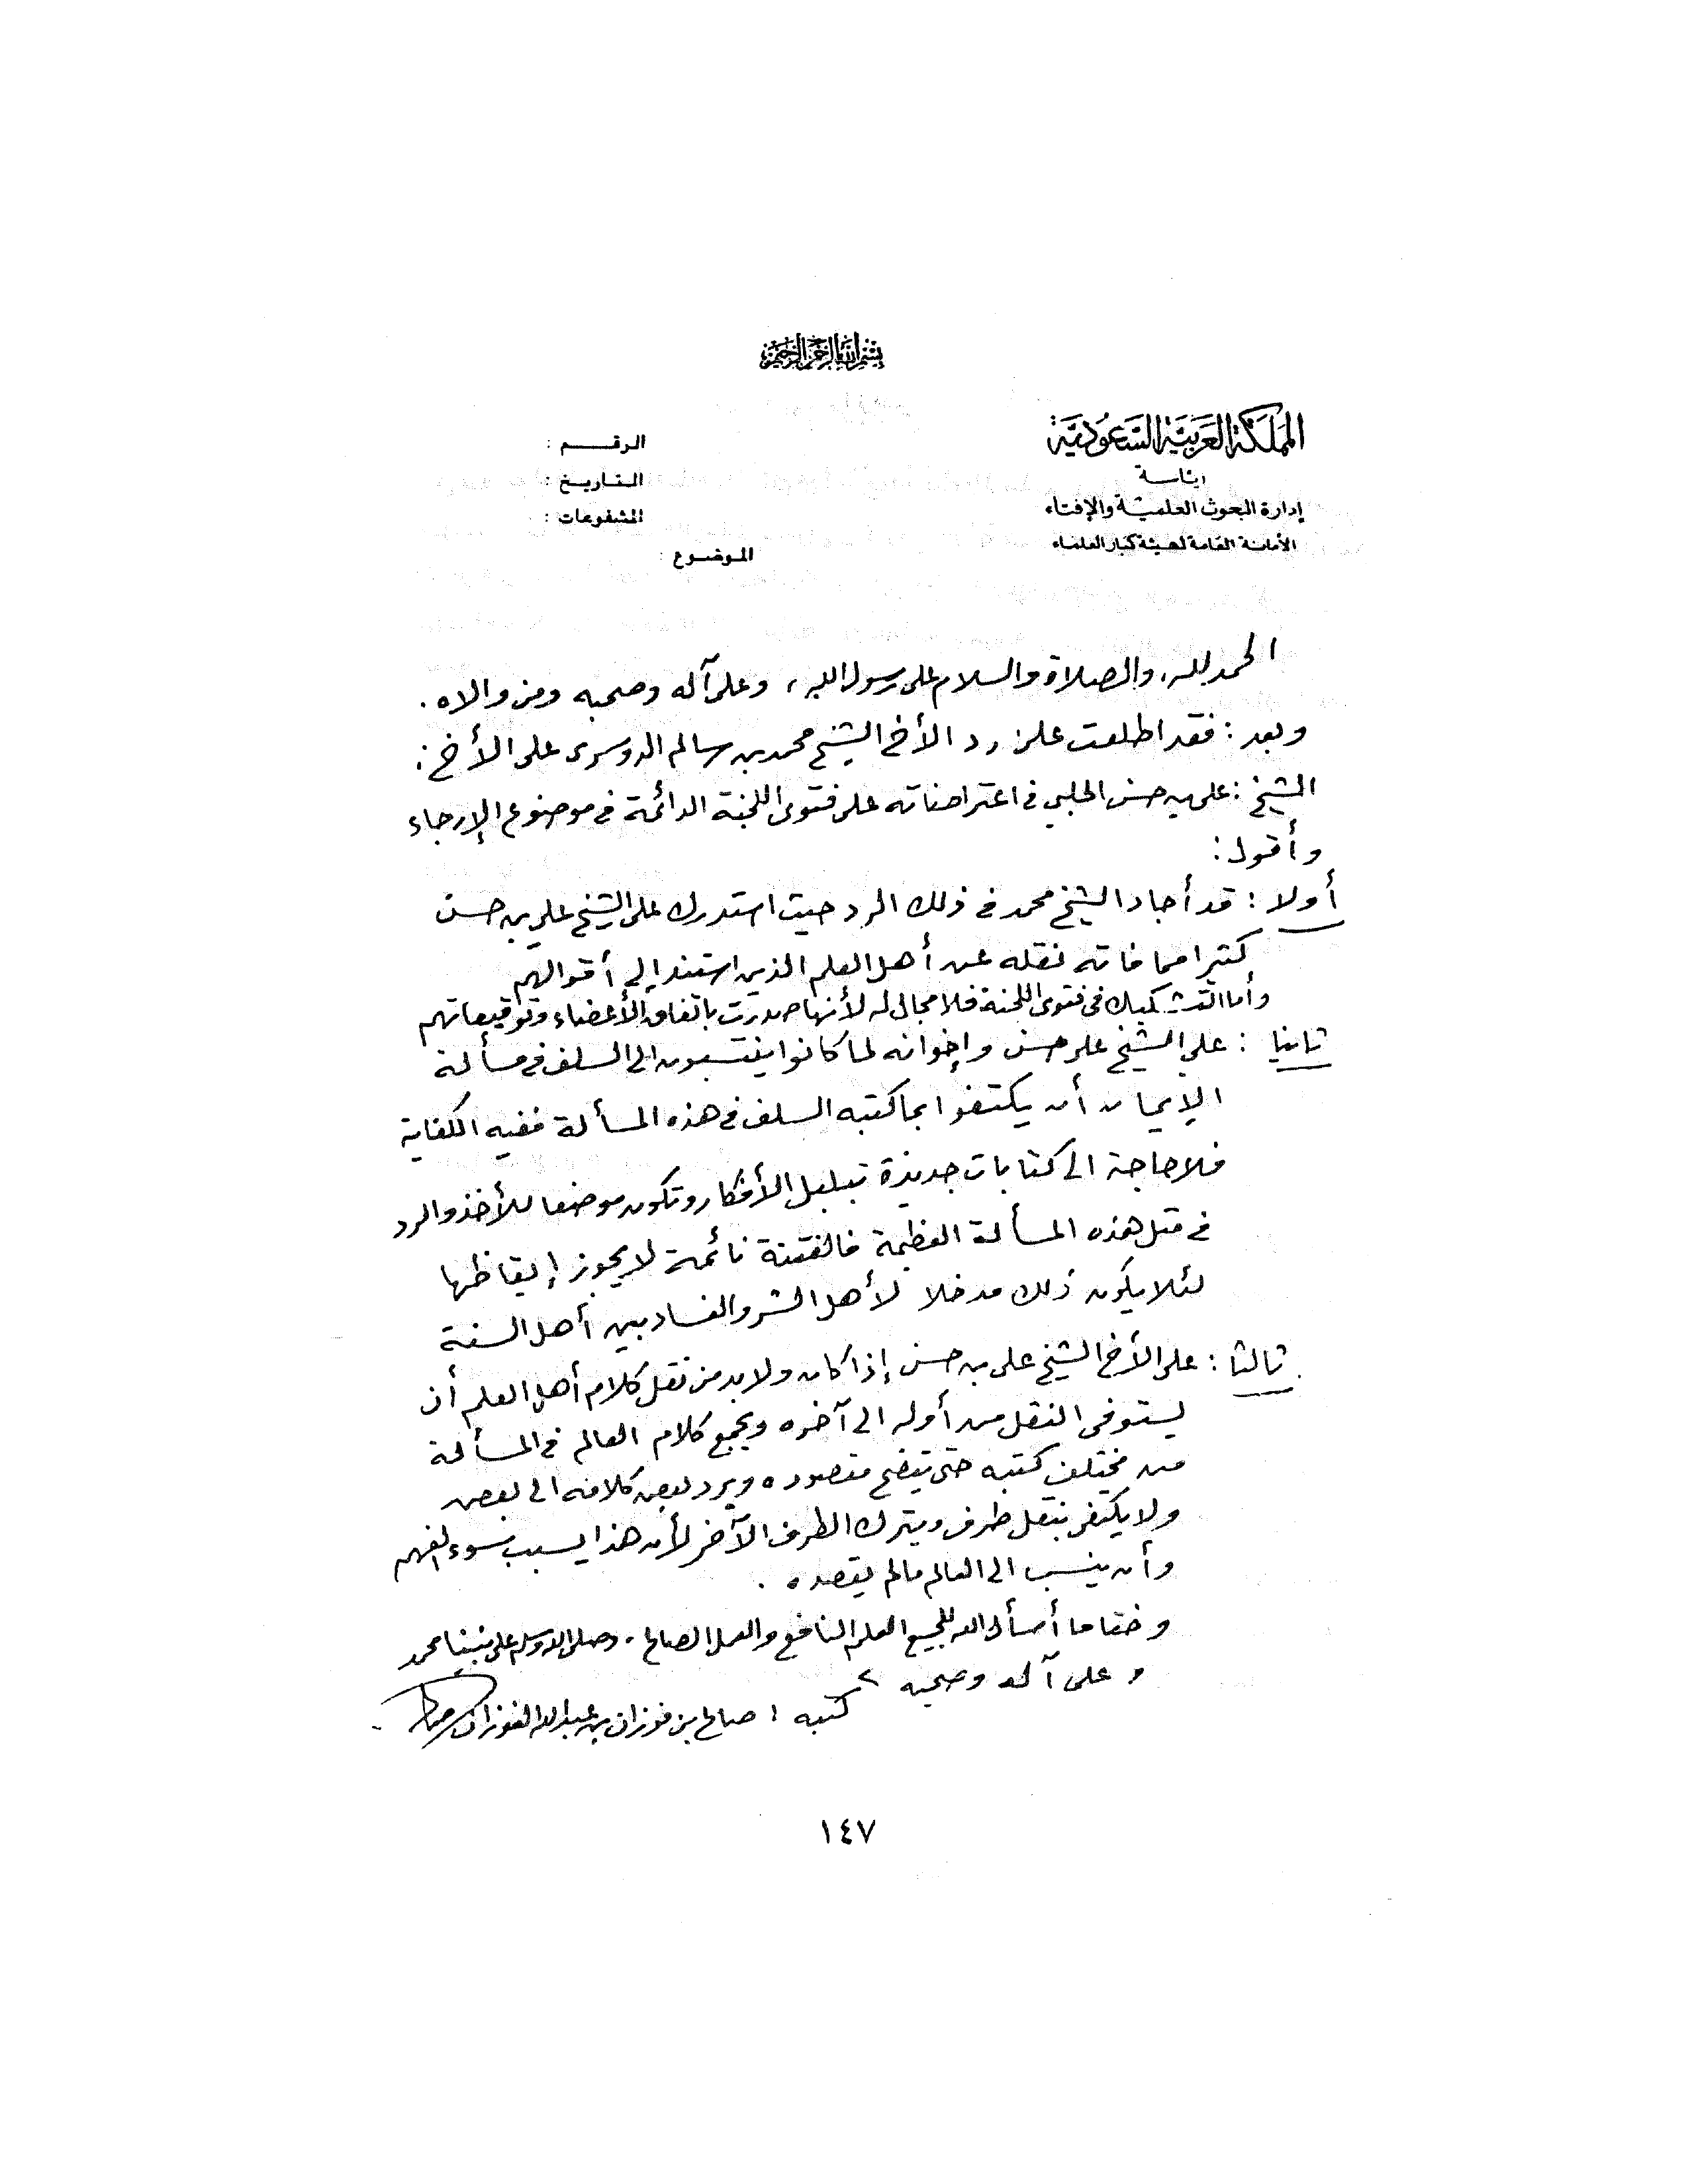 بسم الله الرحمن الرحيم
المملكة العربية السعودية
رئاسة
إدارة البحوث العلمية والإفتاء
الأمانة العامة لهيئة كبار العلماء
الرقم :
التاريخ :
المشفوعات :
الموضوع :
الحمد لله، والصلاة والسلام على رسول الله، وعلى آله وصحبه ومن والاه .
وبعد : فقد اطلعت على رد الأخ الشيخ محمد بن سالم الدوسري على الأخ :
الشيخ : علي بن حسن الحلبي في اعتراضاته على فتوى اللجنة الدائمة في موضوع الإرجاء
وأقول :
أولا : قد أجاد الشيخ محمد في ذلك الرد حيث استدرك على الشيخ علي بن حسن
كثيرا مما فاته نقله عن أهل العلم الذين استند إلى أقوالهم
وأما التشكيك في فتوى اللجنة فلا مجال له لأنها صدرت باتفاق الأعضاء وتوقيعاتهم
ثانيا : على الشيخ علي حسن وإخوانه لما كانوا ينتسبون الى السلف في مسألة
الإيمان أن يكتفوا بما كتبه السلف في هذه المسألة ففيه الكفاية
فلا حاجة الى كتابات جديدة تبلبل الأفكار وتكون موضعا للأخذ والرد
في مثل هذه المسألة العظيمة فالفتنة نائمة لا يجوز إيقاظها
لئلا يكون ذلك مدخلا لأهل الشر والفساد بين أهل السنة
ثالثا : على الأخ الشيخ علي بن حسن إذا كان ولا بد من نقل كلام أهل العلم أن
يستوفى النقل من أوله الى آخره ويجمع كلام العالم في المسألة
من مختلف كتبه حتى يتضح مقصوده ويرد بعض كلامه الى بعض
ولا يكتفى بنقل طرف ويترك الطرف الآخر لأن هذا يسبب سوء الفهم
وأن ينسب الى العالم مالم يقصده .
وختاما أسأل الله للجميع العلم النافع والعمل الصالح . وصلى الله وسلم على نبينا محمد
وعلى آله وصحبه
كتبه : صالح بن فوزان بن عبدالله الفوزان
١٤٧